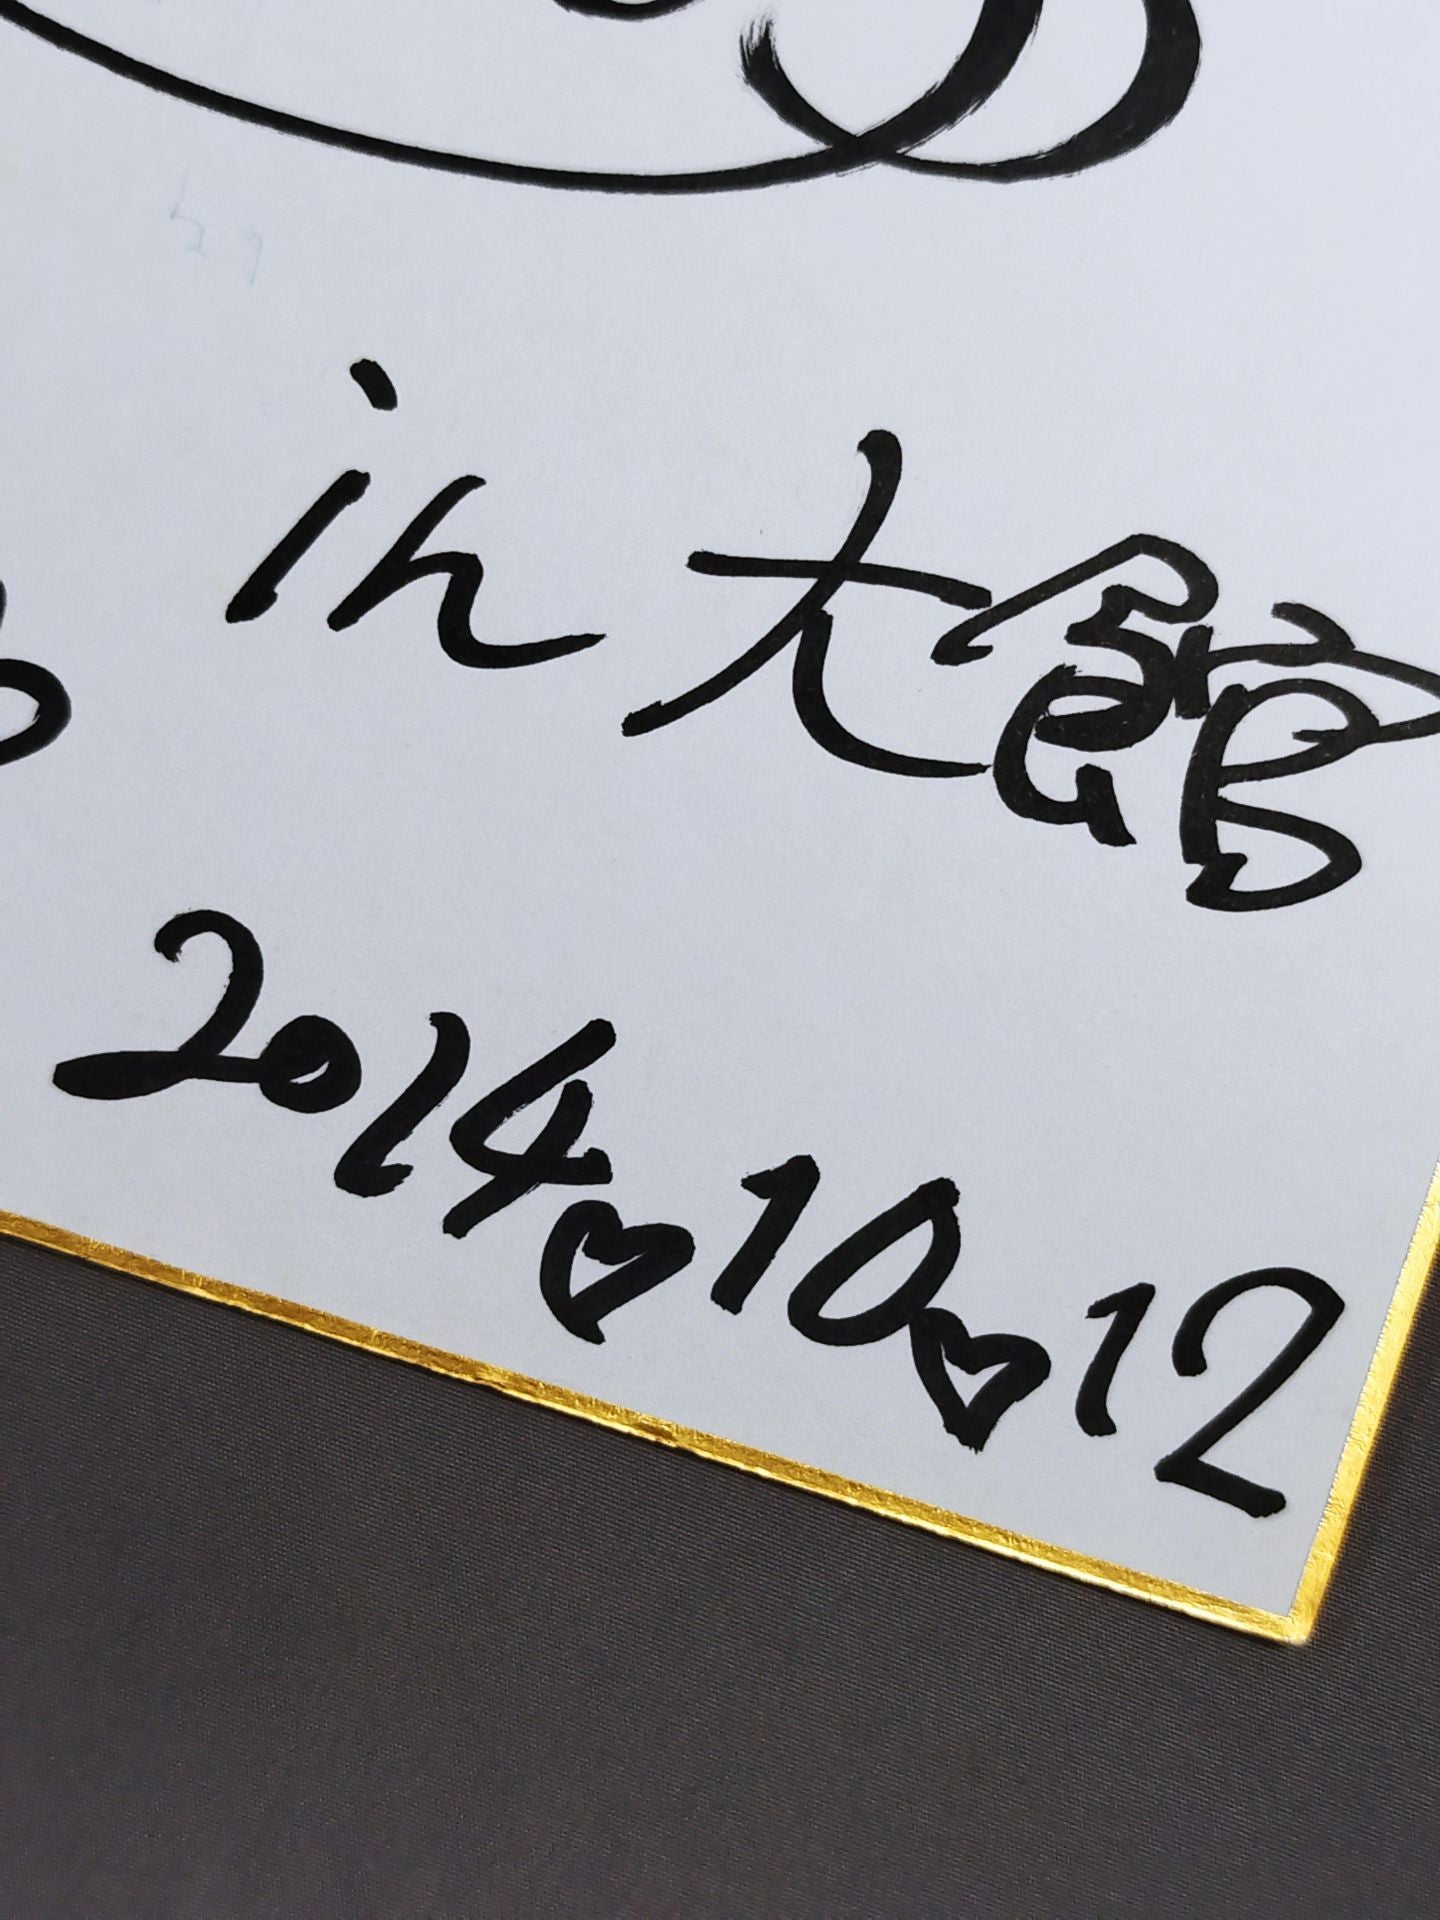 in 大館
2014♡10♡12